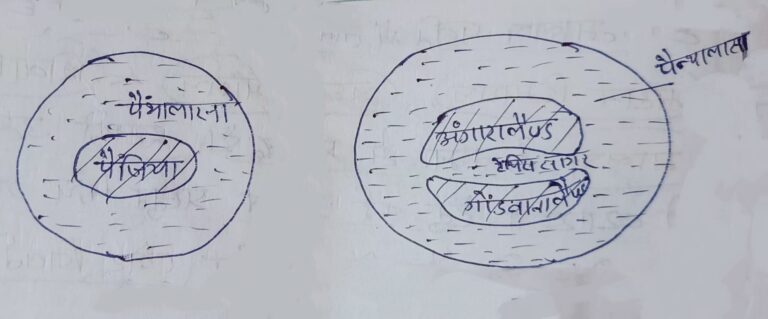 पैंथालासा
पैंजिया
पैन्थालासा
अंगारालैण्ड
टेथिस सागर
गोंडवानालैण्ड